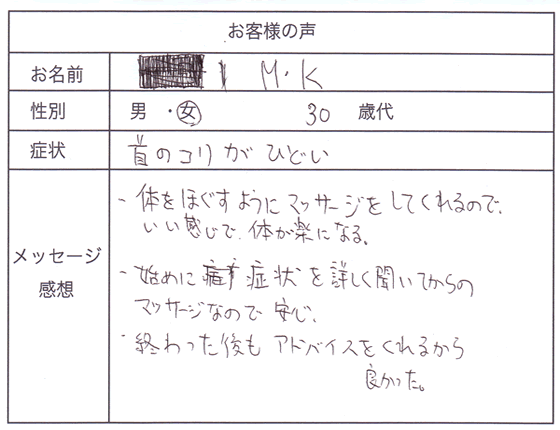 お客様の声
お名前 M・K
性別 男・女 30 歳代
症状 首のコリがひどい
メッセージ
感想
・体をほぐすようにマッサージをしてくれるので、
いい感じで、体が楽になる。
・始めに症状を詳しく聞いてからの
マッサージなので安心、
・終わった後もアドバイスをくれるから
良かった。